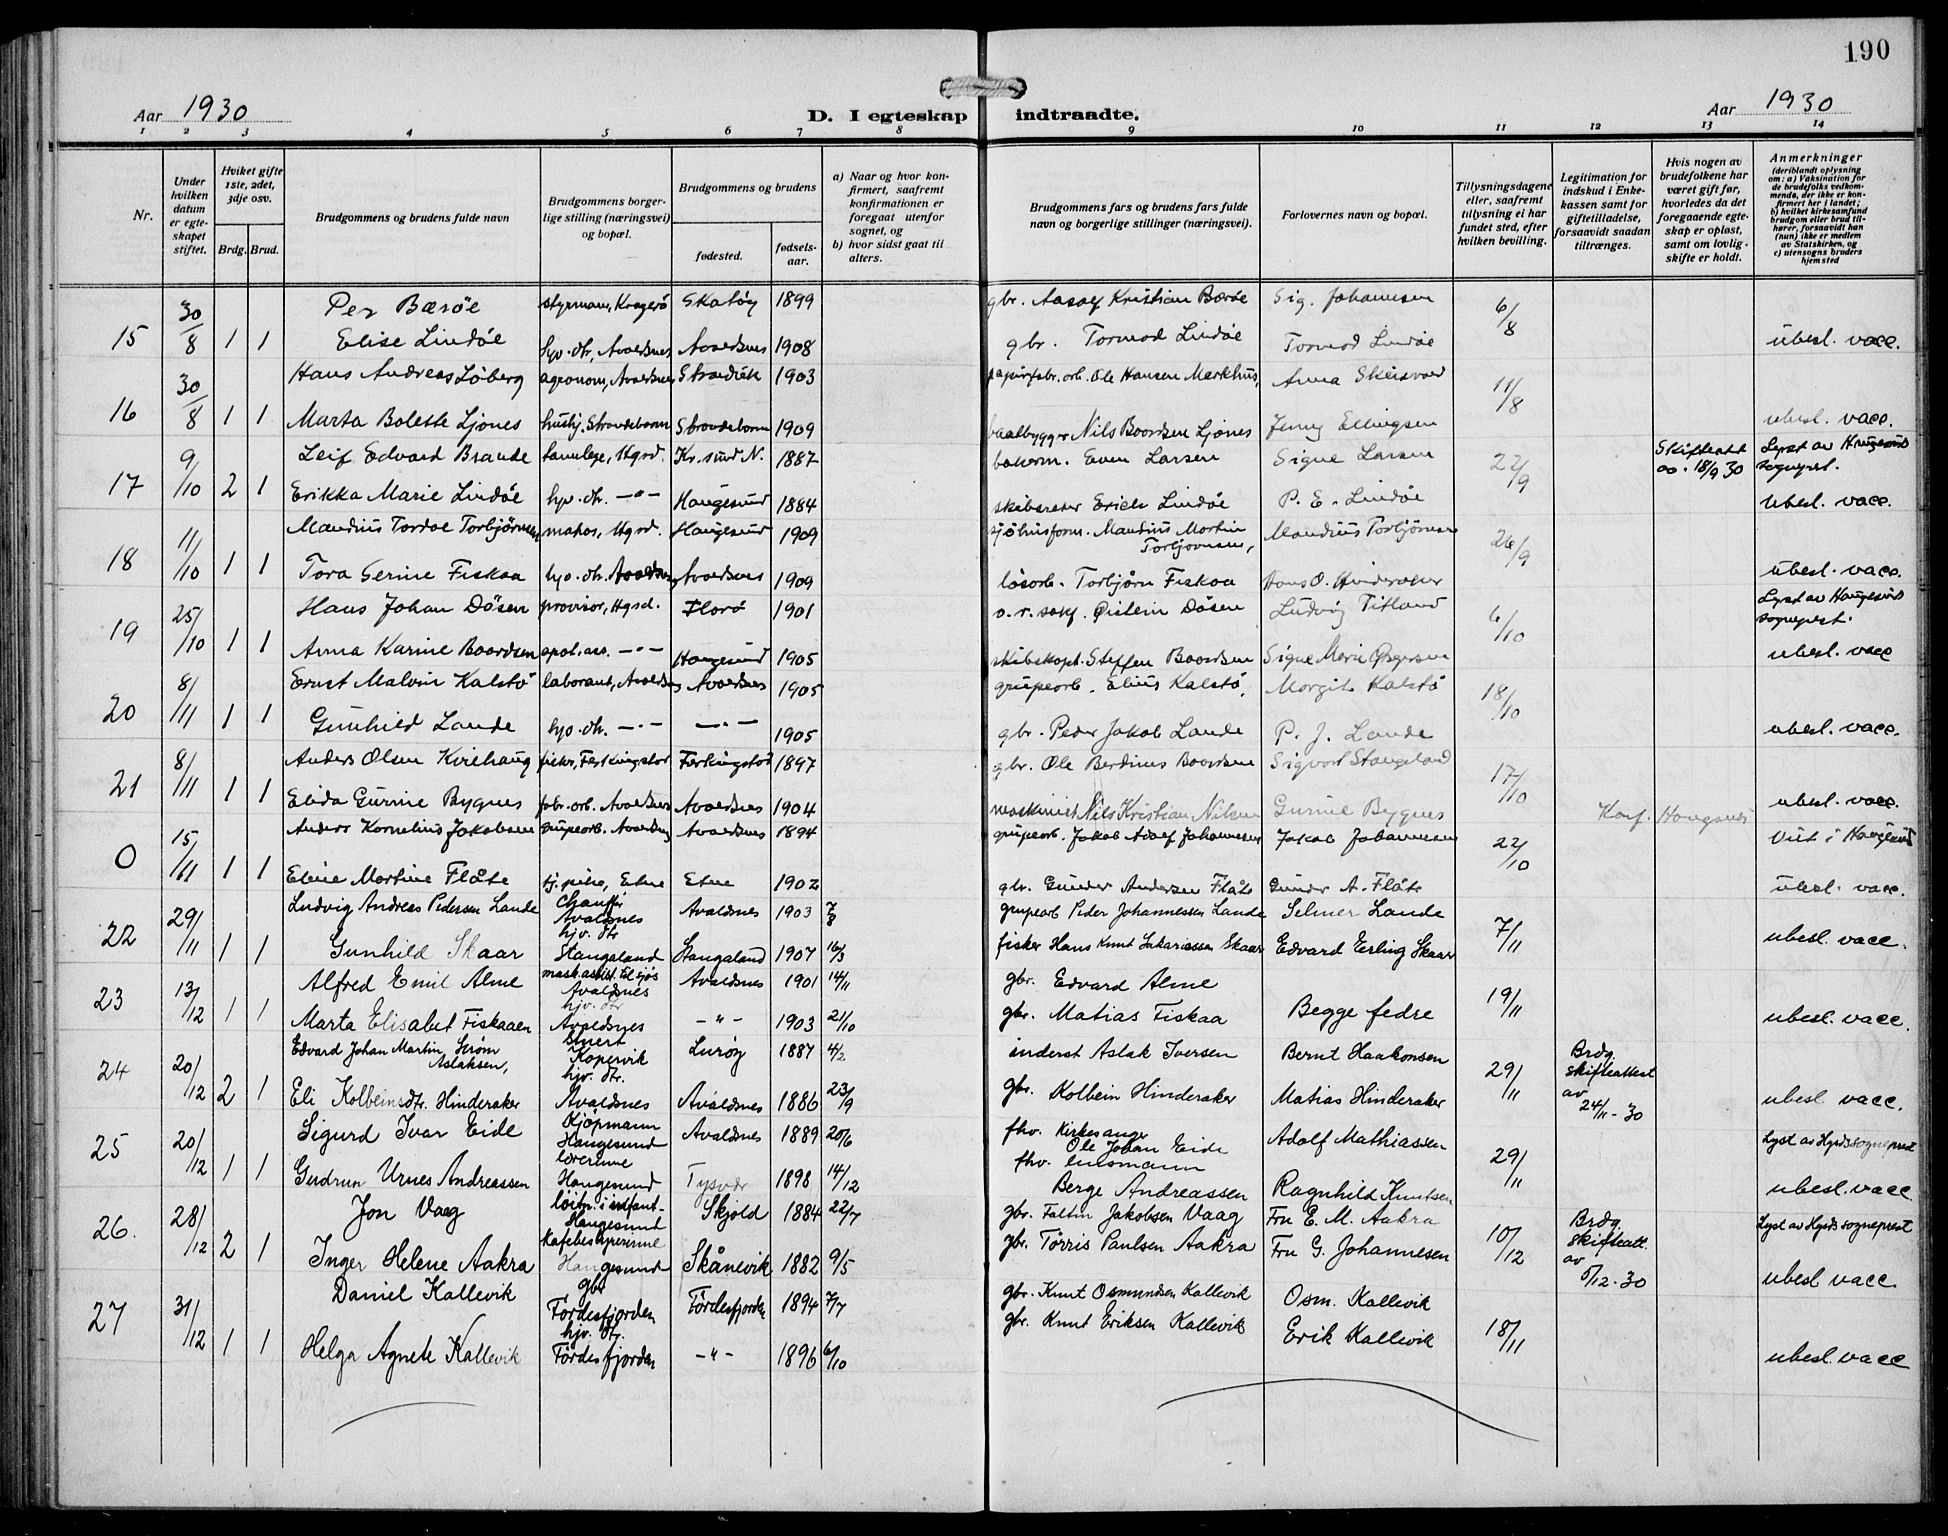 190
Aar 1930
D. I egteskap indtraadte.
Aar 1930
1 2 3 4 5 6 7 8 9 10 11 12 13 14
Nr.
Under hvilken datum er egteskapet stiftet.
Hviket gifte 1ste, 2det, 3dje osv.
Brdg. Brud.
Brudgommens og brudens fulde navn
Brudgommens borgerlige stilling (næringsvei) og bopæl.
Brudgommens og brudens
fødested.
fødselsaar.
a) Naar og hvor konfirmert, saafremt konfirmationen er foregaat utenfor sognet, og
b) hvor sidst gaat til alters.
Brudgommens fars og brudens fars fulde navn og borgerlige stillinger (næringsvei).
Forlovernes navn og bopæl.
Tillysningsdagene eller, saafremt tillysning ei har fundet sted, efter hvilken bevilling.
Legitimation for indskud i Enkekassen samt for giftetilladelse, forsaavidt saadan tiltrænges.
Hvis nogen av brudefolkene har været gift før, hvorledes da det foregaaende egteskap er opløst, samt om lovlig skifte er holdt.
Anmerkninger (deriblandt oplysning om: a) Vaksination for de brudefolks vedkommende, der ikke er konfirmert her i landet; b) hvilket kirkesamfund brudgom eller brud tilhører, forsaavidt han (hun) ikke er medlem av Statskirken, og c) utensogns bruders hjemsted
15 30/8 1 1 Per Bærøe styrmann, Kragerø Skatøy 1899 gbr. Aasolf Kristian Bærøe Sig. Johannesen 6/8
Elise Lindøe hv. dtr, Avaldsnes Avaldsnes 1908 gbr. Tormod Lindøe Tormod Lindøe ubesl. vacc.
16 30/8 1 1 Hans Andreas Løberg agronom, Avaldsnes 1903 papirfabr. arb. Ole Hansen Markhus, Anna 11/8
Marta Bolette Ljønes hushj. Strandebarm Strandebarm 1909 baatbygger Nils Boardsen Ljones Jenny Ellingsen ubesl. vacc.
17 9/10 2 1 Leif Edvard Brande tannlege, Hgsd. Kr. sund N. 1887 bakerm. Even Larsen Signe Larsen 22/9 Skifteatt av. 18/9 30 Lyst av Haugesund sognepr.
Erikka Marie Lindøe hv. dtr. -"- Haugesund 1884 skibsreder Erich Lindøe P. E. Lindøe ubesl. vacc.
18 11/10 1 1 Mandius Tordae Torbjørnsen, matros, Hgsd. Haugesund 1909 sjøhusform. Mandius Martin Torbjornsen, Mandius Torbjørnsen 26/9
Tora Serine Fiskaa hv. dtr. Avaldsnes Avaldsnes 1909 løsarb. Torbjørn Fiskaa Hans O. Hinderaker ubesl. vacc.
19 25/10 1 1 Hans Johan Døsen provisor, Hgsd. Florø 1901 o. r. sakf. Øistein Døsen Ludvig Titland 6/10 Lyst av Haugesund sogneprest.
Anna Karine Boardsen apot. ass. -"- Haugesund 1905 skibskapt. Steffen Boardsen Signe Marie ubesl. vacc
20 8/11 1 1 Ernst Malvin Kalstø laborant, Avaldsnes Avaldsnes 1905 grupearb. Elius Kalstø, Margit Kalstø 18/10
Gunhild Lande hv. dtr. -"- -"- 1905 gbr. Peder Jakob Lande P. J. Lande ubesl. vacc.
21 8/11 1 1 Anders Olsen Kirehaug fisker, Ferkingstad Ferkingstad 1897 gbr. Ole Berdines Boardsen Sigvart Stangeland 17/10
Elida Gurine Bygnes fabr. arb. Avaldsnes Avaldsnes 1904 maskinist Nils Kristian Nilsen Gurine Bygnes Konf. Haugsnes ubesl. vacc.
0 15/11 1 1 Anders Kornelius Jakobsen grupearb. Avaldsnes Avaldsnes 1894 grupearb. Jakob Adolf Johannesen Jakob Johannesen 22/10 Viet i Haugesund
Eline Martine Flåte tj. pike, Etne Etne 1902 gbr. Gunder Andersen Flåte Gunder A. Flåte ubesl. vacc.
22 29/11 1 1 Ludvig Andreas Pedersen Lande Chauffør Avaldsnes Avaldsnes 1903 7/8 grupearb Peder Johannessen Lande Selmer Lande 7/11
Gunhild Skaar hjv. dtr Stangaland Stangaland 1907 16/3 fisker Hans Knut Sakariassen Skaar Edvard Erling Skaar ubesl. vacc.
23 13/12 1 1 Alfred Emil Alne mask.assist. til sjøs Avaldsnes Avaldsnes 1901 14/11 gbr. Edvard Alne Begge fedre 19/11
Marta Elisabet Fiskaaen hjv. dtr Avaldsnes -"- 1903 21/10 gbr. Matias Fiskaa ubesl. vacc.
24 20/12 2 1 Edvard Johan Martin Strøm Aslaksen, Stuert Kopervik Lurøy 1887 4/2 inderst Aslak Iversen Bernt Haakonsen 29/11 Brdg. skifteattest av 24/11-30
Eli Kolbeinsdtr. Hinderaker hjv. dtr. Avaldsnes Avaldsnes 1886 23/9 gbr. Kolbein Hinderaker Matias Hinderaker ubesl. vacc.
25 20/12 1 1 Sigurd Ivar Eide Kjøpmann Haugesund Avaldsnes 1889 20/6 fhv. Kirkesanger Ole Johan Eide Adolf Mathiassen 29/11 Lyst av Hgsds sogneprest
Gudrun Urnes Andreassen lærerinne Haugesund Tysvær 1898 14/12 fhv. lensmann Berge Andreassen Ragnhild Knutsen ubesl. vacc.
26. 28/12 2 1 Jon Vaag løitn. i infant. Haugesund Skjold 1884 22/7 gbr. Faltin Jakobsen Vaag Fru E. M. Aakra 10/12 Brdg. skifteatt. av 5/12-30 Lyst av Hgsds sogneprest
Inger Helene Aakra Kafebestyrerinne Haugesund Skånevik 1882 9/5 gbr. Tørris Paulsen Aakra Fru G. Johannesen ubesl vacc
27 31/12 1 1 Daniel Kallevik gbr Førdesfjorden Førdesfjorden 1894 7/7 gbr. Knut Osmundsen Kallevik Osm. Kallevik 18/11
Helga Agnete Kallevik hjv. dtr. Førdesfjorden -"- 1896 6/10 gbr. Knut Eriksen Kallevik Erik Kallevik ubesl. vacc